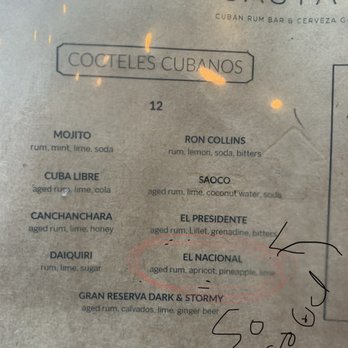 CUBAN RUM BAR & CERVEZA
COCTELES CUBANOS
12
MOJITO
rum, mint, lime, soda
CUBA LIBRE
aged rum, lime, cola
CANCHANCHARA
aged rum, lime, honey
DAIQUIRI
rum, lime, sugar
RON COLLINS
rum, lemon, soda, bitters
SAOCO
aged rum, lime, coconut water, soda
EL PRESIDENTE
aged rum, Lillet, grenadine, bitters
EL NACIONAL
aged rum, apricot, pineapple, lime
GRAN RESERVA DARK & STORMY
aged rum, calvados, lime, ginger beer
So good